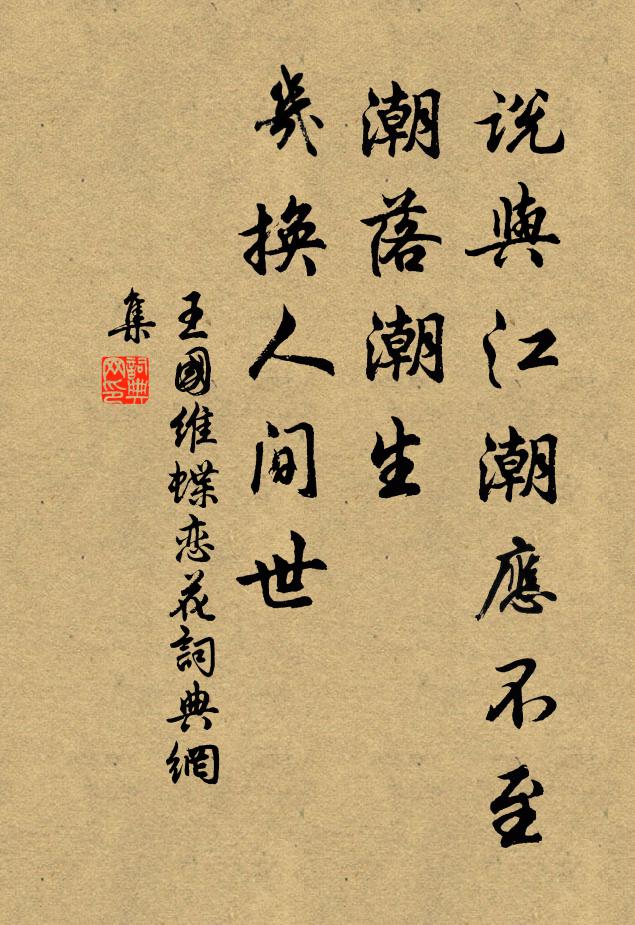 説與江潮應不至
潮落潮生
幾換人間世
王國維蝶恋花詞典網
集
詞典
网印